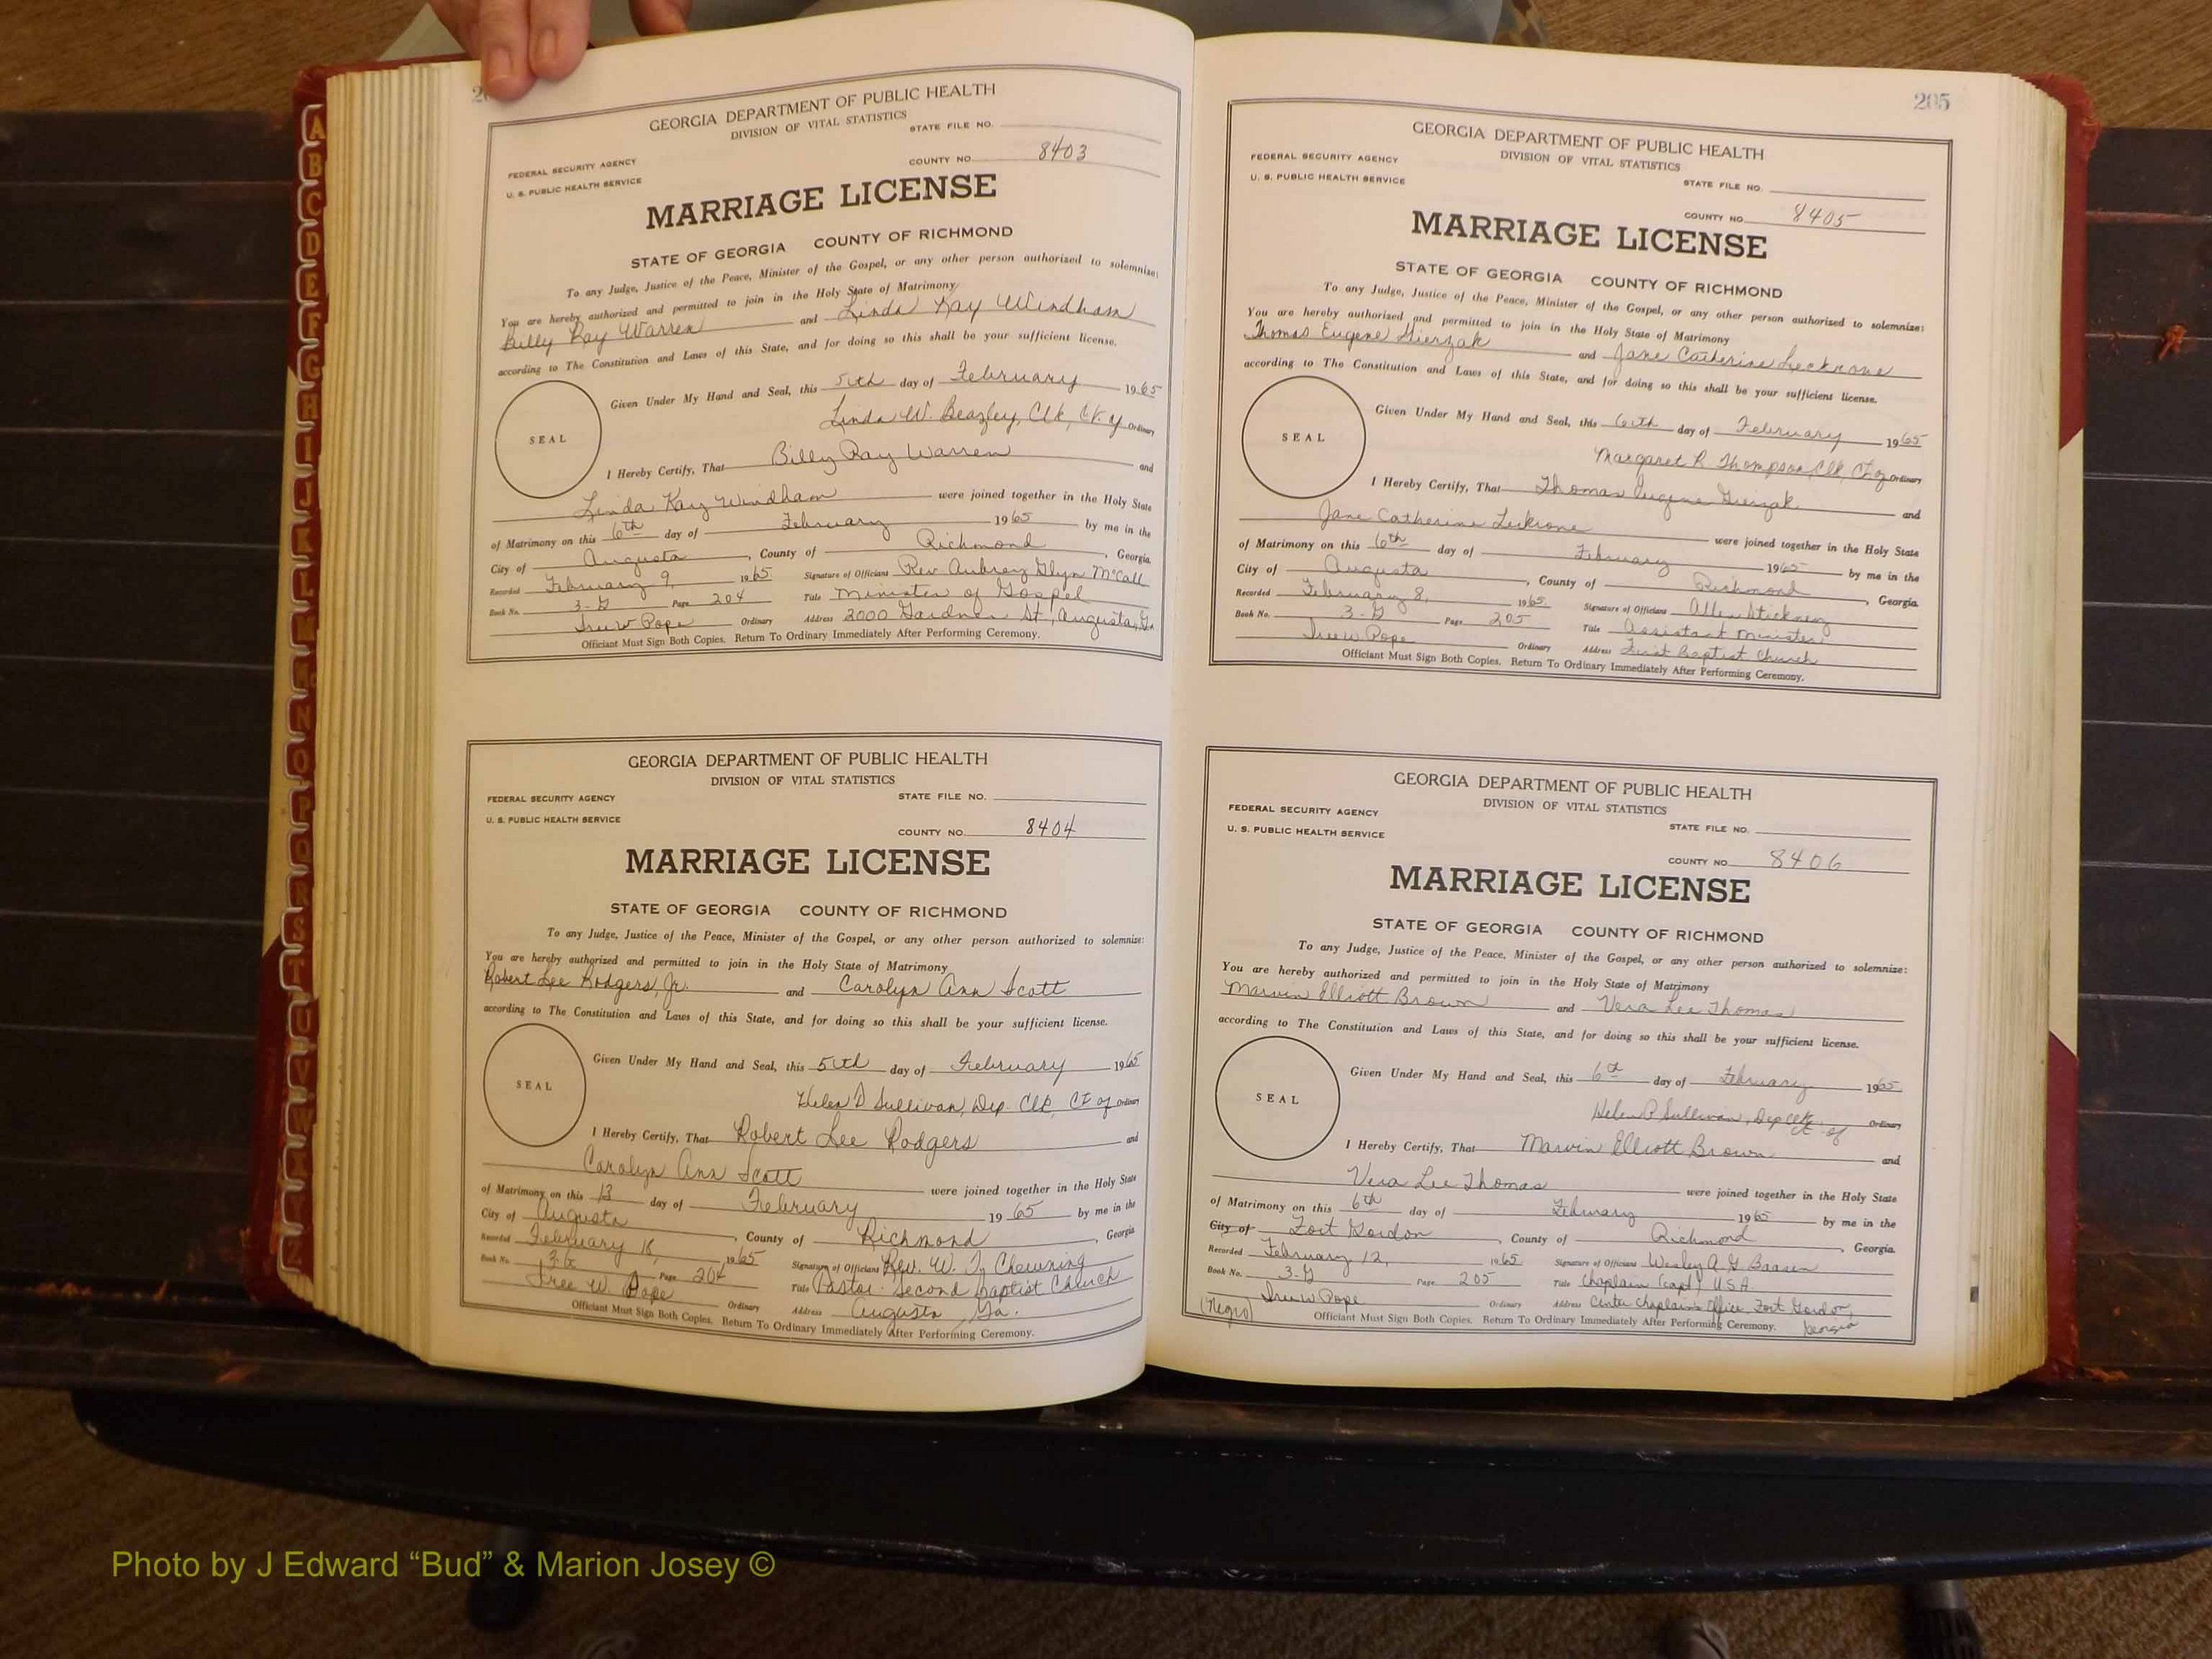 A
B
C
D
E
F
G
H
I
J
K
L
M
Mc
N
O
P
Q
R
S
T
U
V
W
GEORGIA DEPARTMENT OF PUBLIC HEALTH
DIVISION OF VITAL STATISTICS
STATE FILE NO.
FEDERAL SECURITY AGENCY
U. S. PUBLIC HEALTH SERVICE
COUNTY NO. 8403
MARRIAGE LICENSE
STATE OF GEORGIA COUNTY OF RICHMOND
To any Judge, Justice of the Peace, Minister of the Gospel, or any other person authorized to solemnize:
You are hereby authorized and permitted to join in the Holy State of Matrimony
Billy Ray Warren and Linda Kay Windham
according to The Constitution and Laws of this State, and for doing so this shall be your sufficient license.
SEAL
Given Under My Hand and Seal, this 5th day of February 1965
Linda W. Beazley, Clk, Ct. of Ordinary
I Hereby Certify, That Billy Ray Warren and
Linda Kay Windham were joined together in the Holy State
of Matrimony on this 6th day of February 1965 by me in the
City of Augusta, County of Richmond, Georgia.
Recorded February 9, 1965 Signature of Officiant Rev. Aubrey Glyn McCall
Book No. 3-G Page 204 Title Minister of Gospel
Ordinary Address 2000 Gardner St., Augusta, Ga.
Officiant Must Sign Both Copies. Return To Ordinary Immediately After Performing Ceremony.
GEORGIA DEPARTMENT OF PUBLIC HEALTH
DIVISION OF VITAL STATISTICS
FEDERAL SECURITY AGENCY
STATE FILE NO.
U. S. PUBLIC HEALTH SERVICE
COUNTY NO. 8404
MARRIAGE LICENSE
STATE OF GEORGIA COUNTY OF RICHMOND
To any Judge, Justice of the Peace, Minister of the Gospel, or any other person authorized to solemnize:
You are hereby authorized and permitted to join in the Holy State of Matrimony
Robert Lee Rodgers, Jr. and Carolyn Ann Scott
according to The Constitution and Laws of this State, and for doing so this shall be your sufficient license.
SEAL
Given Under My Hand and Seal, this 5th day of February 1965
Helen D Sullivan, Dep. Clk, Ct of Ordinary
I Hereby Certify, That Robert Lee Rodgers and
Carolyn Ann Scott were joined together in the Holy State
of Matrimony on this 13 day of February 1965 by me in the
City of Augusta, County of Richmond, Georgia
Recorded February 1965 Signature of Officiant Rev. W. J. Chewning
Book No. 3-G Page 204 Title Pastor Second Baptist Church
W. Pope Ordinary Address Augusta, Ga.
Officiant Must Sign Both Copies. Return To Ordinary Immediately After Performing Ceremony.
205
GEORGIA DEPARTMENT OF PUBLIC HEALTH
DIVISION OF VITAL STATISTICS
FEDERAL SECURITY AGENCY
U. S. PUBLIC HEALTH SERVICE
STATE FILE NO.
COUNTY NO. 8405
MARRIAGE LICENSE
STATE OF GEORGIA COUNTY OF RICHMOND
To any Judge, Justice of the Peace, Minister of the Gospel, or any other person authorized to solemnize:
You are hereby authorized and permitted to join in the Holy State of Matrimony
Thomas Eugene Gierzak and Jane Catherine Leckrone
according to The Constitution and Laws of this State, and for doing so this shall be your sufficient license.
SEAL
Given Under My Hand and Seal, this 6th day of February 1965
Margaret R Thompson, Clk, Ct of Ordinary
I Hereby Certify, That Thomas Eugene Gierzak and
Jane Catherine Leckrone were joined together in the Holy State
of Matrimony on this 6th day of February 1965 by me in the
City of Augusta, County of Richmond, Georgia
Recorded February 8, 1965 Signature of Officiant Allen Stickney
Book No. 3-G Page 205 Title Assistant Minister
Ordinary Address First Baptist Church
Officiant Must Sign Both Copies. Return To Ordinary Immediately After Performing Ceremony.
GEORGIA DEPARTMENT OF PUBLIC HEALTH
DIVISION OF VITAL STATISTICS
FEDERAL SECURITY AGENCY
U. S. PUBLIC HEALTH SERVICE
STATE FILE NO.
COUNTY NO. 8406
MARRIAGE LICENSE
STATE OF GEORGIA COUNTY OF RICHMOND
To any Judge, Justice of the Peace, Minister of the Gospel, or any other person authorized to solemnize:
You are hereby authorized and permitted to join in the Holy State of Matrimony
Marvin Elliott Brown and Vera Lee Thomas
according to The Constitution and Laws of this State, and for doing so this shall be your sufficient license.
SEAL
Given Under My Hand and Seal, this 6th day of February 1965
Helen D Sullivan, Dep Clk Ct of Ordinary
I Hereby Certify, That Marvin Elliott Brown and
Vera Lee Thomas were joined together in the Holy State
of Matrimony on this 6th day of February 1965 by me in the
City of Fort Gordon, County of Richmond, Georgia
Recorded February 12, 1965 Signature of Officiant Wesley A. G.
Book No. 3-G Page 205 Title Chaplain (Capt) USA
Ordinary Address Center Chaplain's Office, Fort Gordon, Georgia
(Negro)
Officiant Must Sign Both Copies. Return To Ordinary Immediately After Performing Ceremony.
Photo by J Edward “Bud” & Marion Josey ©